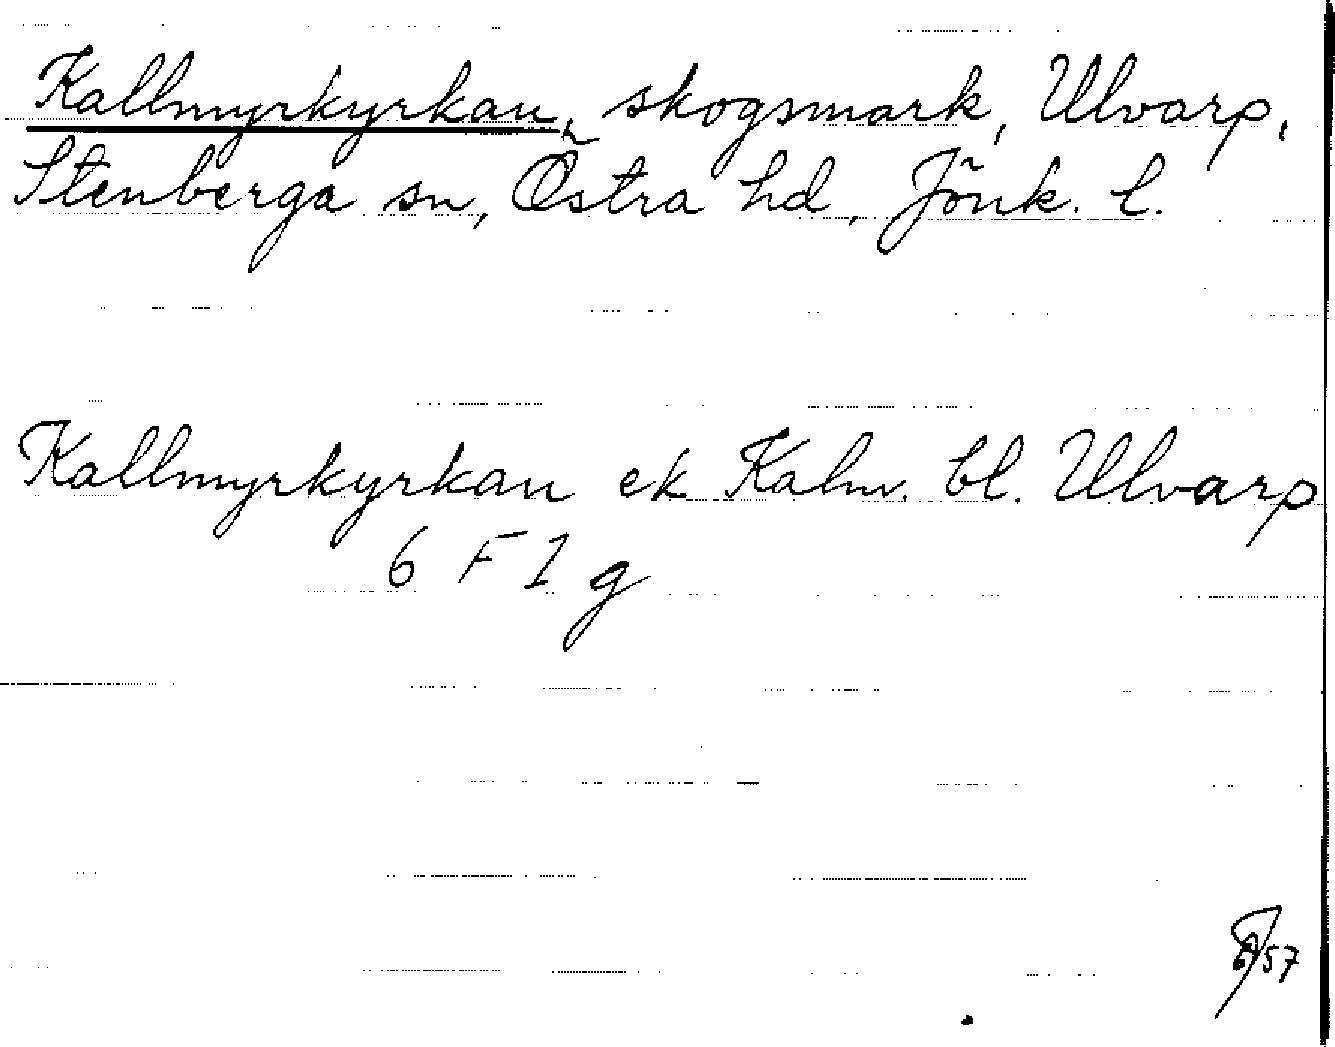 Kallmyrkyrkan, skogsmark, Ulvarp,
Stenberga sn, Östra hd, Jönk. l.
Kallmyrkyrkan ek Kalm. bl. Ulvarp
6 F 1 g
57